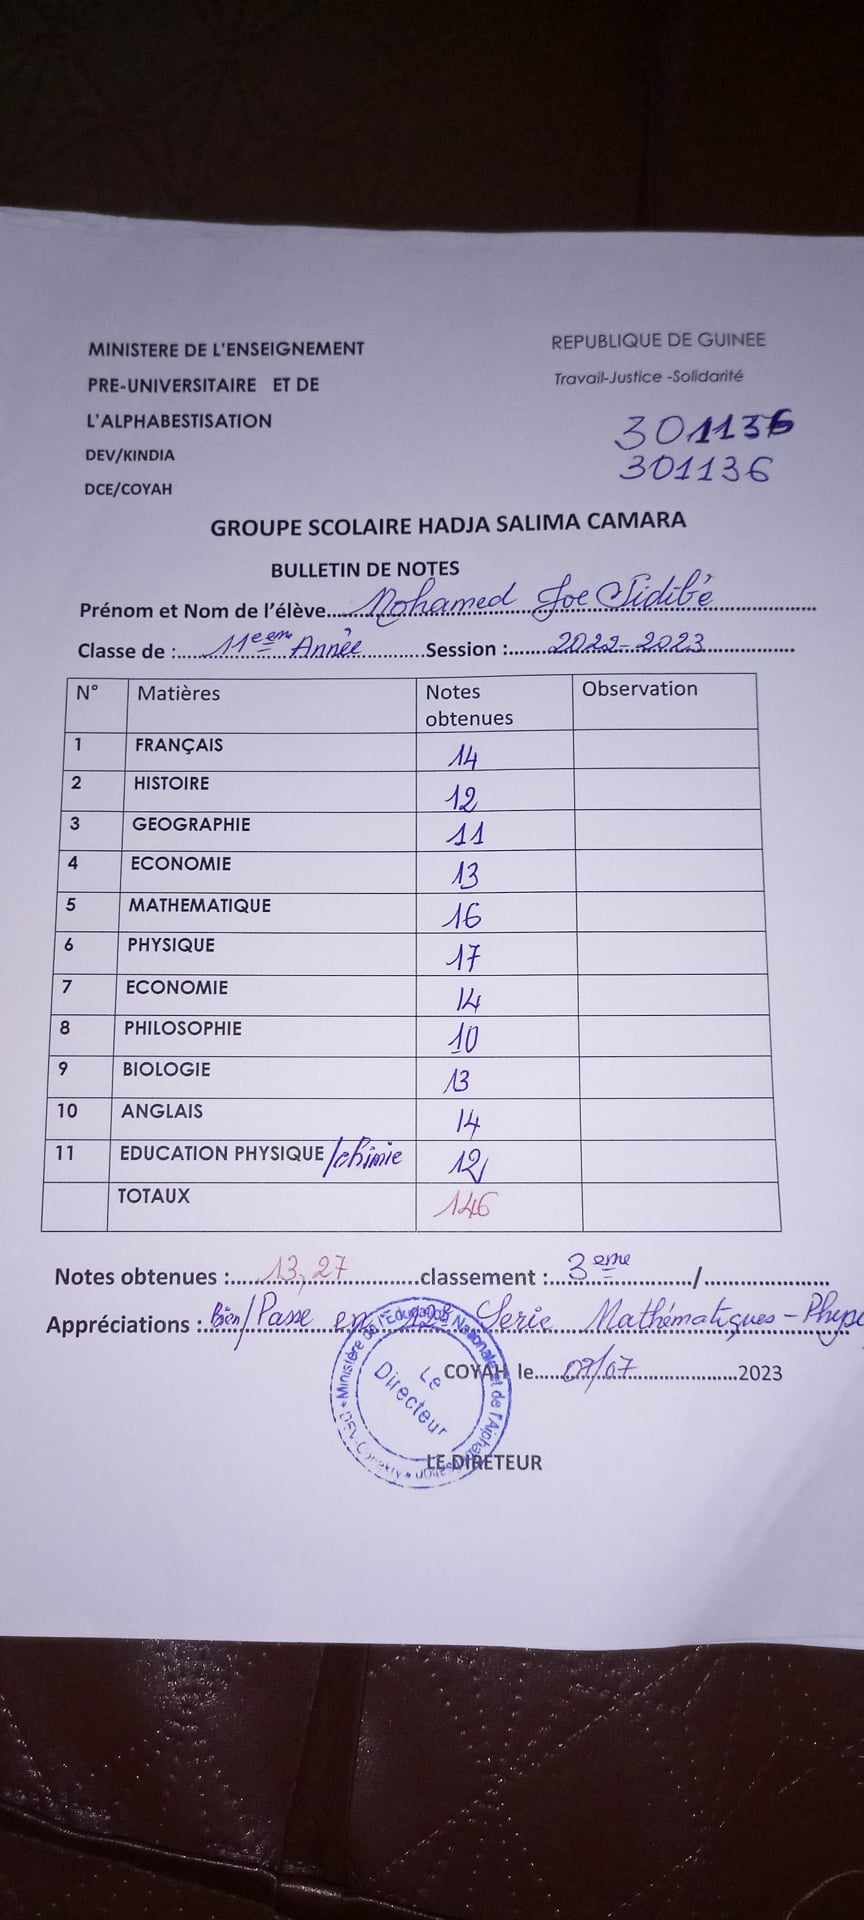 MINISTERE DE L'ENSEIGNEMENT
PRE-UNIVERSITAIRE ET DE
L'ALPHABESTISATION
DEV/KINDIA
DCE/COYAH
REPUBLIQUE DE GUINEE
Travail-Justice -Solidarité
301136
301136
GROUPE SCOLAIRE HADJA SALIMA CAMARA
BULLETIN DE NOTES
Prénom et Nom de l'élève....Mohamed Joe Sidibé
Classe de :......11eeme Année............Session :.......2022-2023
N° Matières Notes obtenues Observation
1 FRANÇAIS 14
2 HISTOIRE 12
3 GEOGRAPHIE 11
4 ECONOMIE 13
5 MATHEMATIQUE 16
6 PHYSIQUE 17
7 ECONOMIE 14
8 PHILOSOPHIE 10
9 BIOLOGIE 13
10 ANGLAIS 14
11 EDUCATION PHYSIQUE/chimie 12
TOTAUX 146
Notes obtenues :.....13,27............classement :...3eme........../....................
Appréciations : Bien/Passe en 12e Serie Mathématiques-
COYAH le.....07/07.....................2023
Ministère de l'Education Nationale et de l'Alphabétisation
Le Directeur
LE DIRETEUR